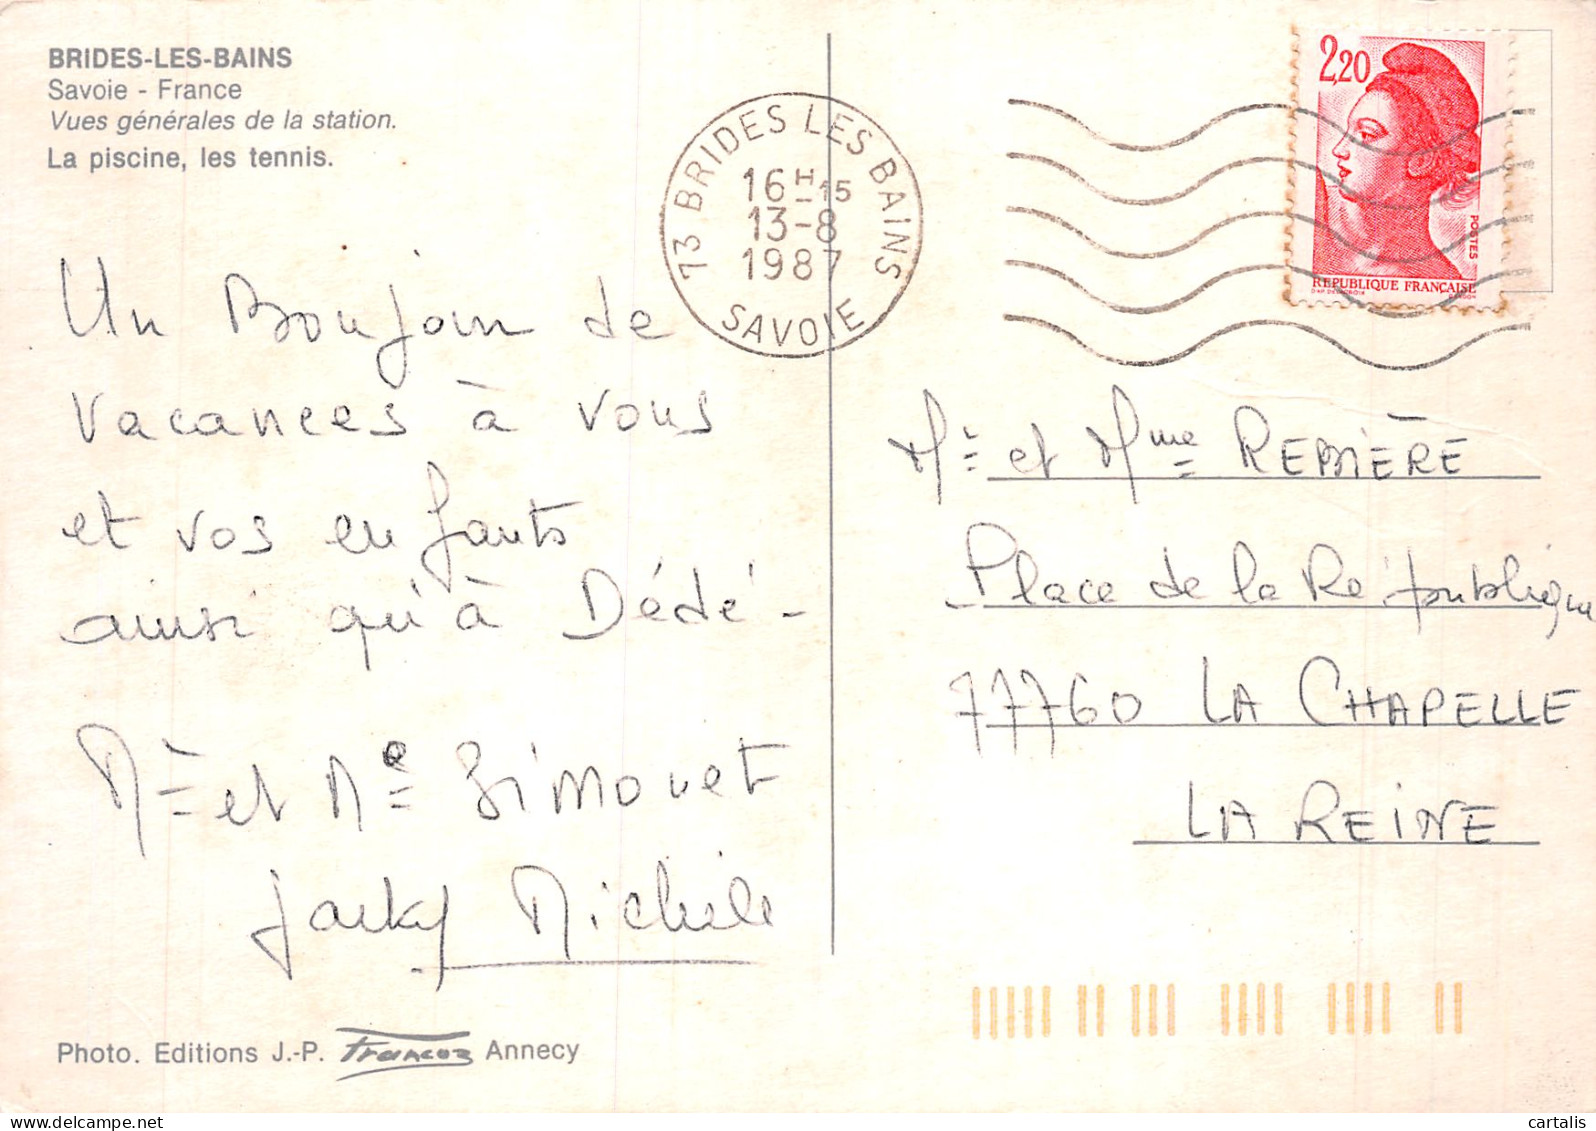 BRIDES-LES-BAINS
Savoie - France
Vues générales de la station.
La piscine, les tennis.
73 BRIDES LES BAINS
16H15
13-8
1987
SAVOIE
2,20
POSTES
RÉPUBLIQUE FRANÇAISE
Un Bonjour de
vacances à vous
et vos enfants
ainsi qu'à Dédé -
Mr et Me Simonet
Jacky Michèle
Mr et Mme
Place de la République
77760 LA CHAPELLE
LA REINE
Photo. Editions J.-P. Francoz Annecy
cartalis